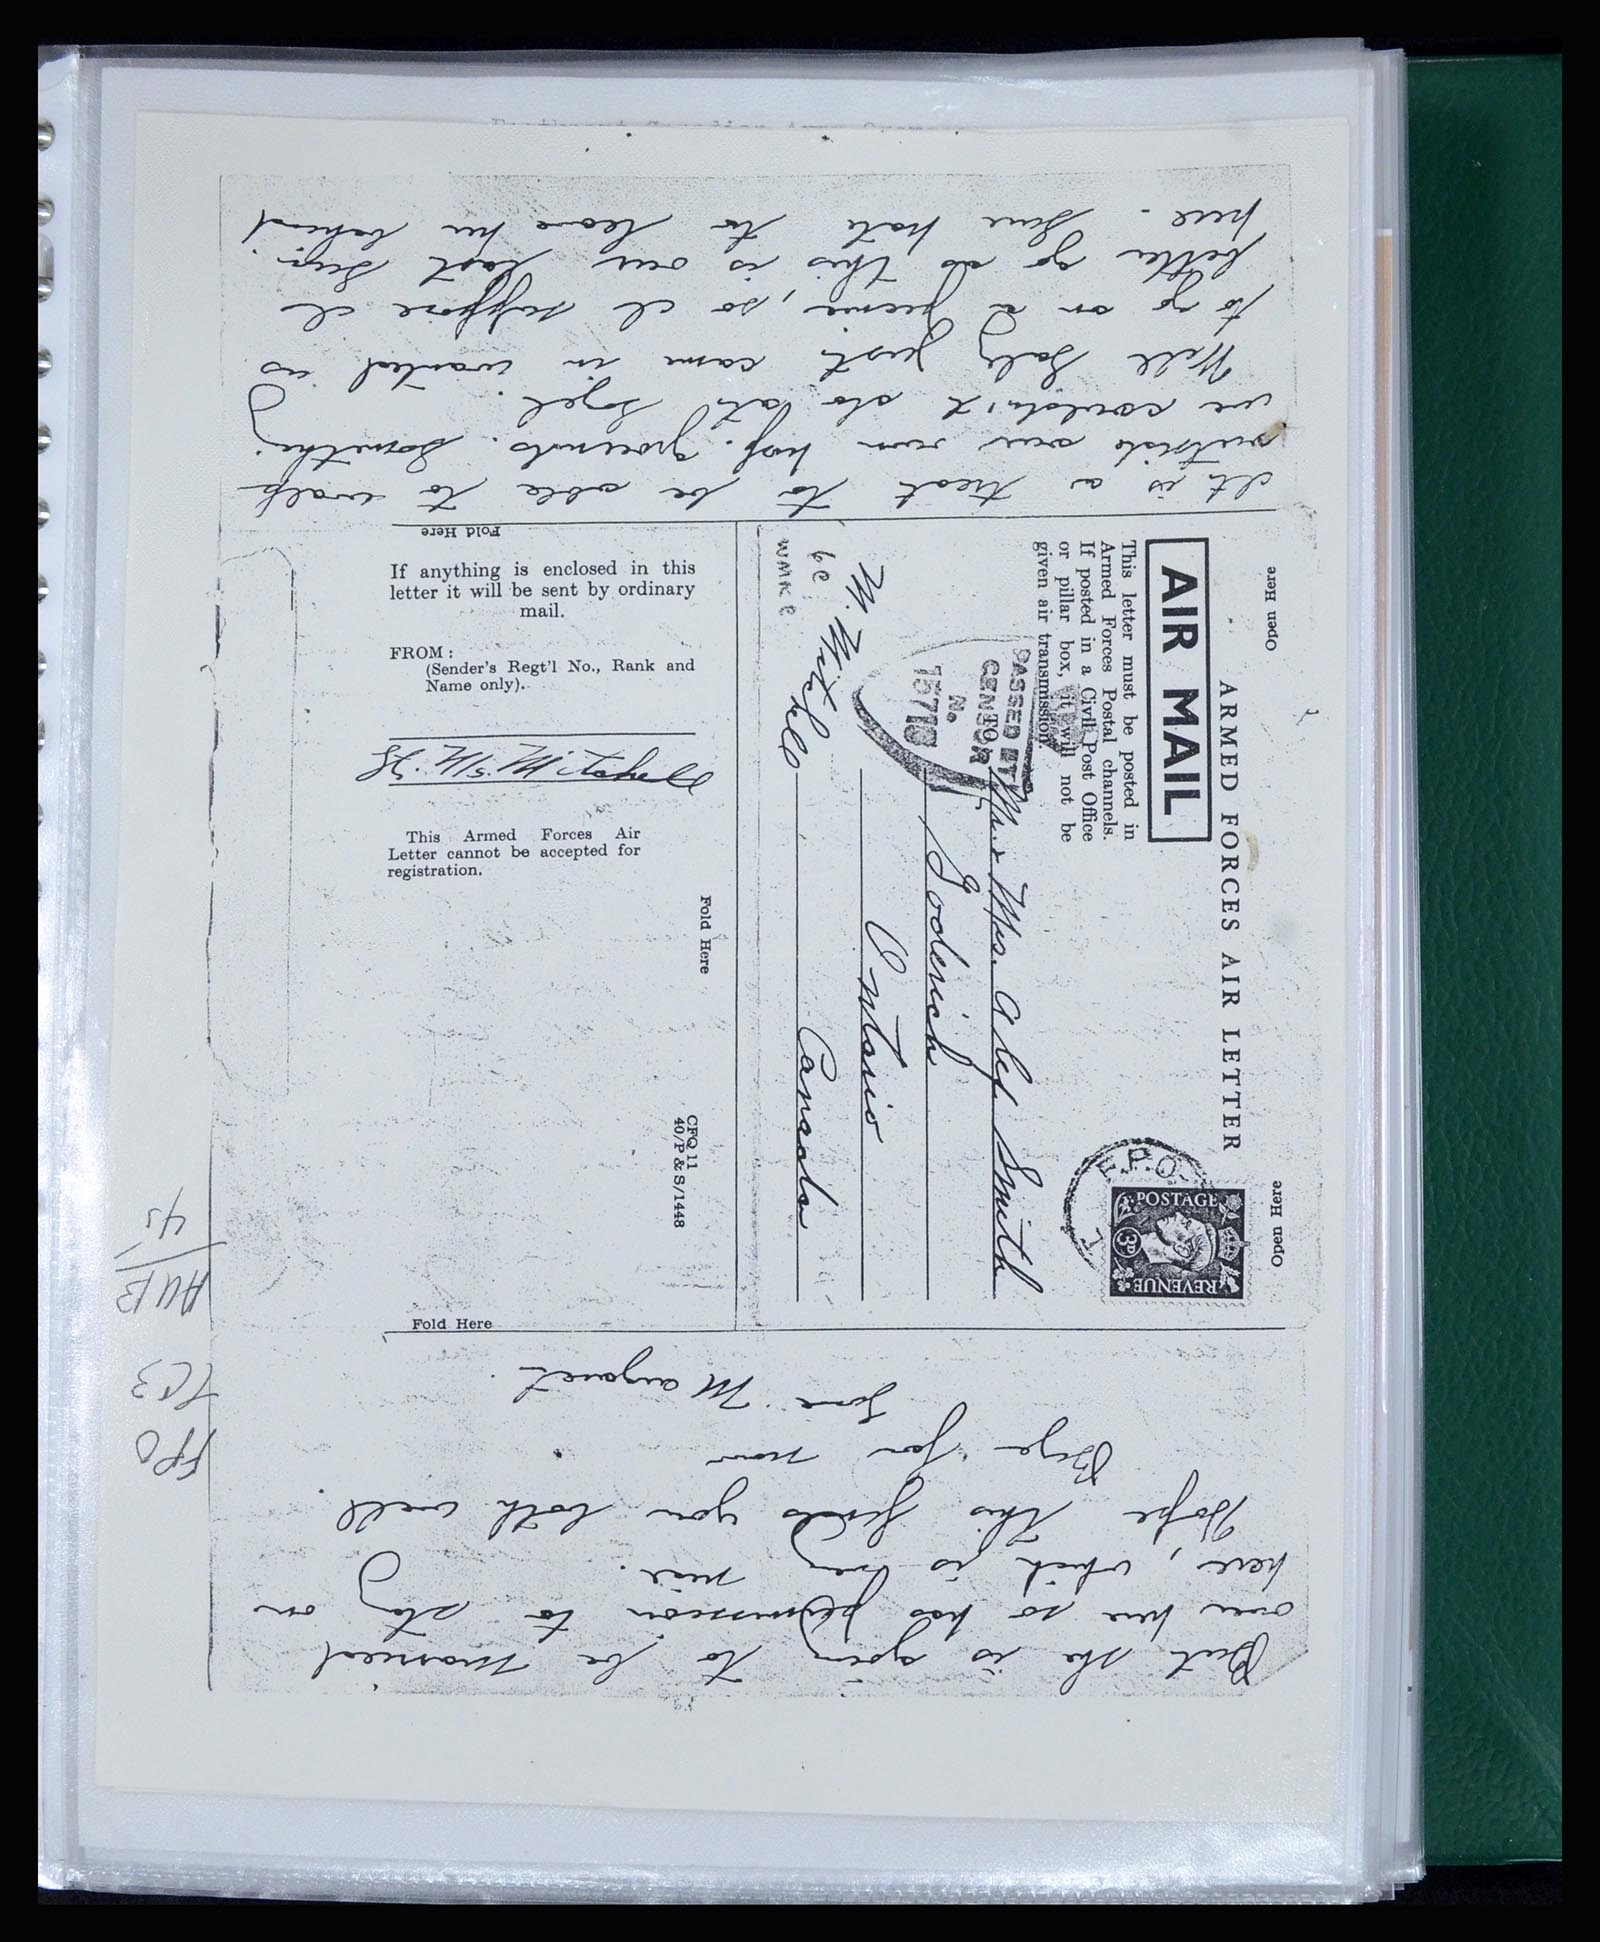 ARMED FORCES AIR LETTER
Open Here
Open Here
AIR MAIL
This letter must be posted in
Armed Forces Postal channels.
If posted in a Civil Post Office
or pillar box, it will not be
given air transmission.
POSTAGE
3D
REVENUE
PASSED BY
CENSOR
No.
15710
TO
Mr. & Mrs. Alex Smith
Goderich
Ontario
Canada
M. Mitchell
Fold Here
If anything is enclosed in this
letter it will be sent by ordinary
mail.
FROM:
(Sender's Regt'l No., Rank and
Name only).
Lt. M/s. Mitchell
This Armed Forces Air
Letter cannot be accepted for
registration.
Fold Here
CFQ 11
40/P & S/1448
Fold Here
But she is going to be married
over here so has permission to stay on
here, which is very nice.
Hope this finds you both well.
Bye for now
Love Margaret.
It is a treat to be able to walk
outside our own hosp. grounds. Something
we couldn't do at
Well Sally just came in wanted us
to go on a picnic, so I suppose I
better go as this is our last Sun.
here. Sure hate to leave her behind
FPO
TC3
AUB
45